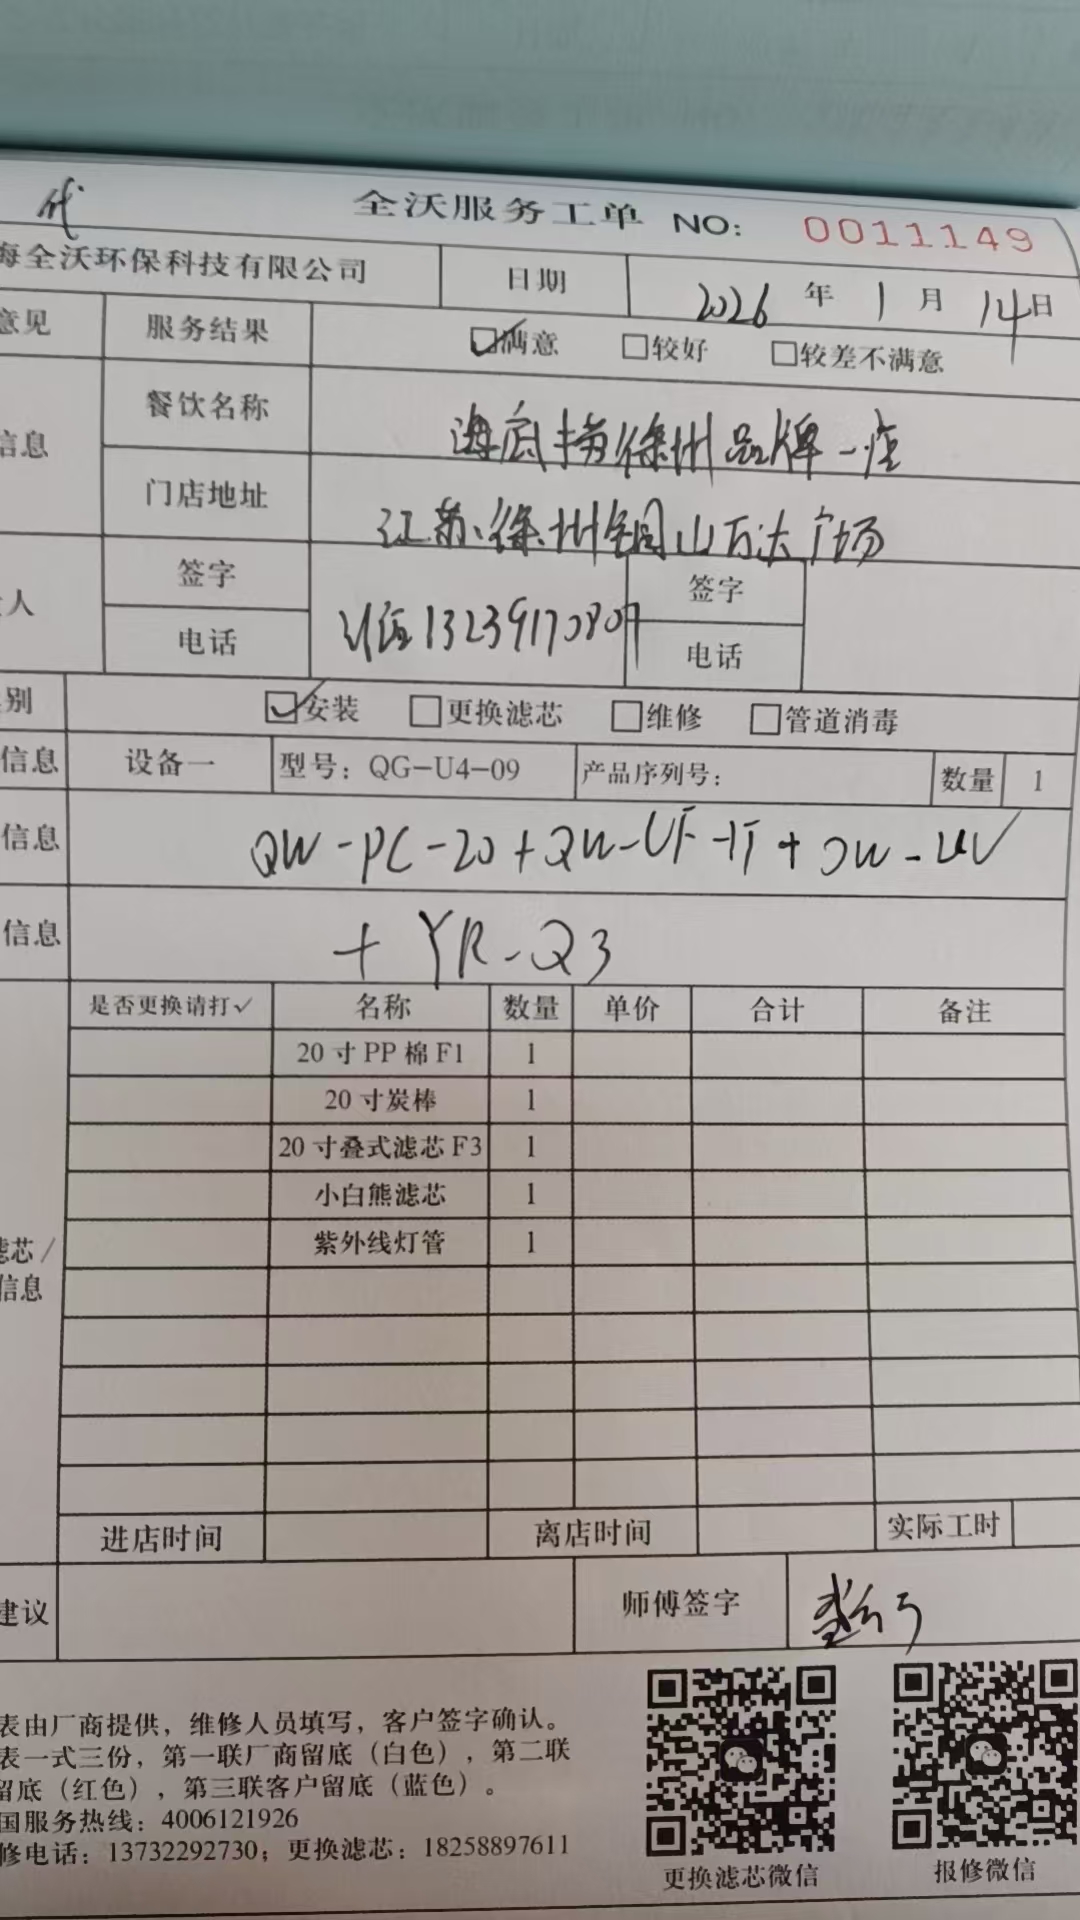 代
全沃服务工单 NO: 0011149
海全沃环保科技有限公司 日期 2026 年 1 月 14 日
意见 服务结果 满意 较好 较差不满意
信息 餐饮名称 海底捞徐州品牌一店
门店地址 江苏徐州铜山万达广场
人 签字 签字
电话 13239170807 电话
别 安装 更换滤芯 维修 管道消毒
信息 设备一 型号：QG-U4-09 产品序列号： 数量 1
信息 QW-PC-20+QW-UF-1T+QW-UV
信息 + YR-Q3
是否更换请打✓ 名称 数量 单价 合计 备注
20寸PP棉F1 1
20寸炭棒 1
20寸叠式滤芯F3 1
小白熊滤芯 1
紫外线灯管 1
滤芯/
信息
进店时间 离店时间 实际工时
建议 师傅签字
表由厂商提供，维修人员填写，客户签字确认。
表一式三份，第一联厂商留底（白色），第二联
留底（红色），第三联客户留底（蓝色）。
国服务热线：4006121926
修电话：13732292730；更换滤芯：18258897611
更换滤芯微信 报修微信